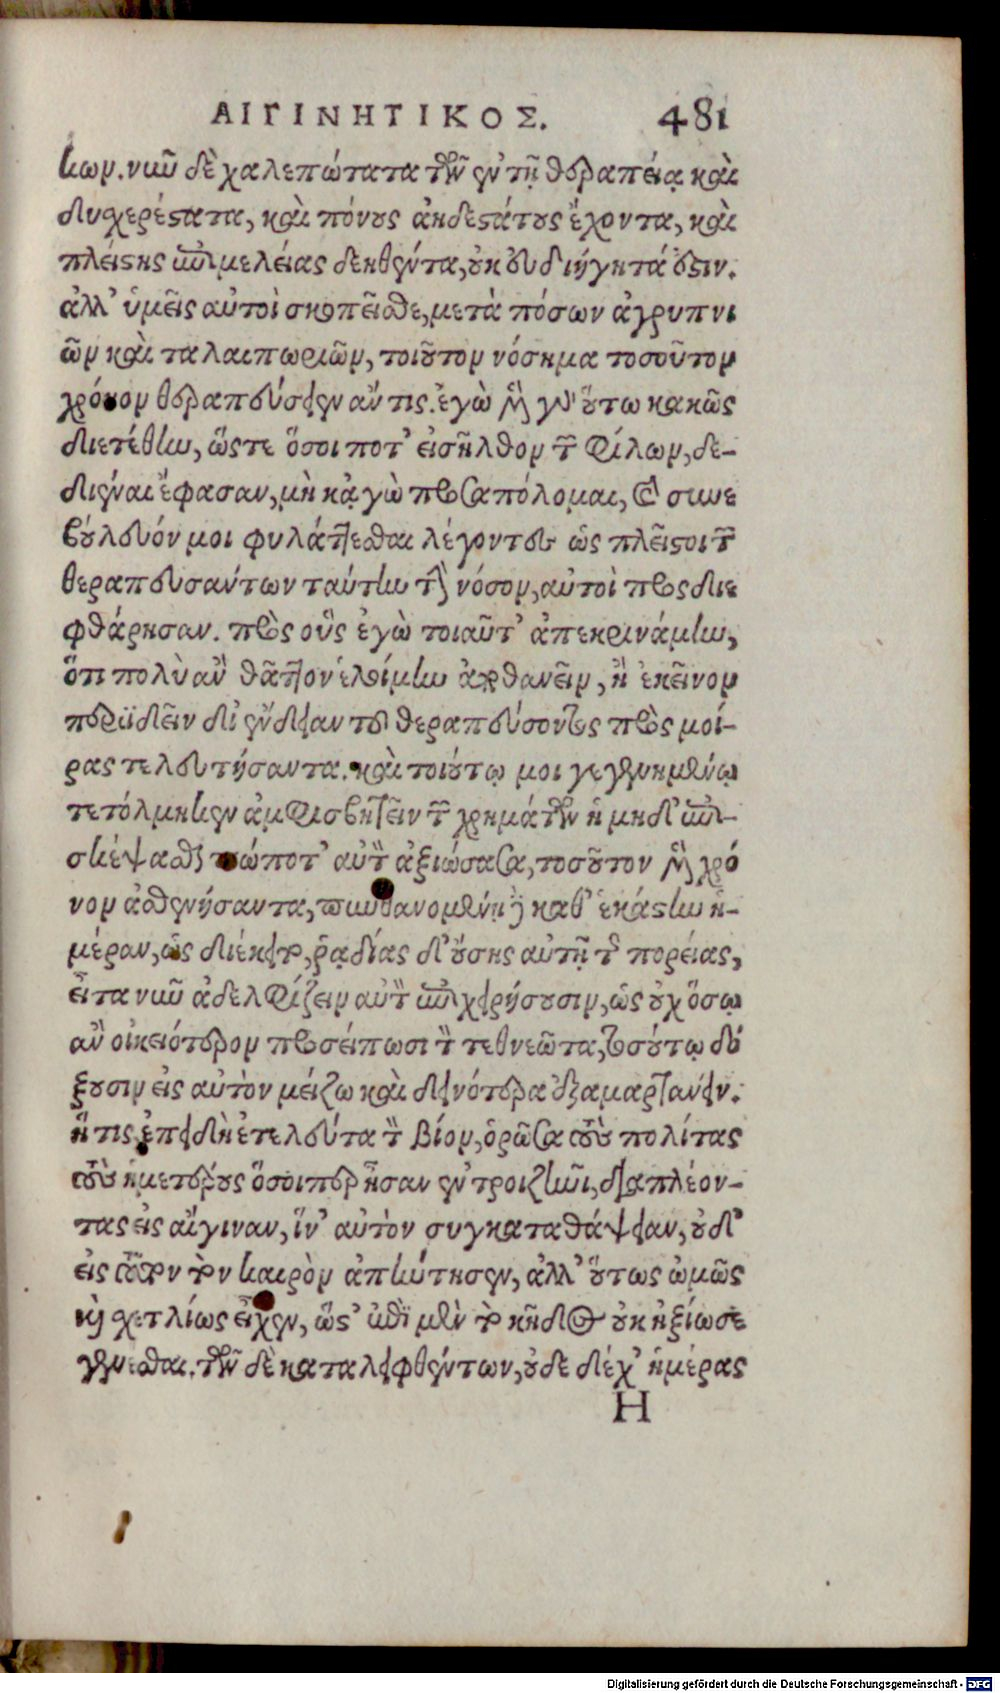 ΑΙΓΙΝΗΤΙΚΟΣ. 481
κων. νῦν δὲ χαλεπώτατα τῶν ἐν τῇ θεραπείᾳ καὶ
δυχερέστατα, καὶ πόνους ἀηδεστάτους ἔχοντα, καὶ
πλείστης ἐπιμελείας δεηθέντα, οὐκ εὐδιήγητά ἐστιν.
ἀλλ' ὑμεῖς αὐτοὶ σκοπεῖσθε, μετὰ πόσων ἀγρυπνι
ῶν καὶ ταλαιπωριῶν, τοιοῦτον νόσημα τοσοῦτον
χρόνον θεραπεύσειεν ἄν τις. ἐγὼ μὲν γὰρ οὕτω κακῶς
διετέθην, ὥστε ὅσοι ποτ' εἰσῆλθον τῶν φίλων, δε-
διέναι ἔφασαν, μὴ κᾀγὼ προσαπόλομαι, καὶ συνε
βούλευόν μοι φυλάττεσθαι λέγοντες ὡς πλεῖστοι τῶν
θεραπευσάντων ταύτην τὴν νόσον, αὐτοὶ προσδιε
φθάρησαν. πρὸς οὓς ἐγὼ τοιαῦτ' ἀπεκρινάμην,
ὅτι πολὺ ἂν θᾶττον ἑλοίμην ἀποθανεῖν, ἢ ἐκεῖνον
περιϊδεῖν δι' ἔνδειαν τοῦ θεραπεύσοντος πρὸς μοί-
ρας τελευτήσαντα. καὶ τοιούτῳ μοι γεγενημένῳ
τετόλμηκεν ἀμφισβητεῖν τῶν χρημάτων ἡ μηδ' ἐπι-
σκέψασθαι πώποτ' αὐτὸν ἀξιώσασα, τοσοῦτον μὲν χρό
νον ἀσθενήσαντα, πυνθανομένη δὲ καθ' ἑκάστην ἡ-
μέραν, ὡς διέκειτο, ῥᾳδίας δ' οὔσης αὐτῇ τῆς πορείας,
εἶτα νῦν ἀδελφίζειν αὐτὸν ἐπιχειρήσουσιν, ὡς οὐχ ὅσῳ
ἂν οἰκειότερον προσείπωσι τὸν τεθνεῶτα, τοσούτῳ δό
ξουσιν εἰς αὐτὸν μείζω καὶ δεινότερα ἐξαμαρτάνειν.
ἥτις ἐπειδὴ ἐτελεύτα τὸν βίον, ὁρῶσα τοὺς πολίτας
τοὺς ἡμετέρους ὅσοιπερ ἦσαν ἐν τροιζῆνι, διαπλέον-
τας εἰς αἴγιναν, ἵν' αὐτὸν συγκαταθάψειαν, οὐδ'
εἰς τοῦτον τὸν καιρὸν ἀπήντησεν, ἀλλ' οὕτως ὠμῶς
καὶ χετλίως εἶχεν, ὥστ' ἐπὶ μὲν τὸ κῆδος οὐκ ἠξίωσε
γενέσθαι. τῶν δὲ καταλειφθέντων, οὐδε δέχ' ἡμέρας
Η
Digitalisierung gefördert durch die Deutsche Forschungsgemeinschaft - DFG